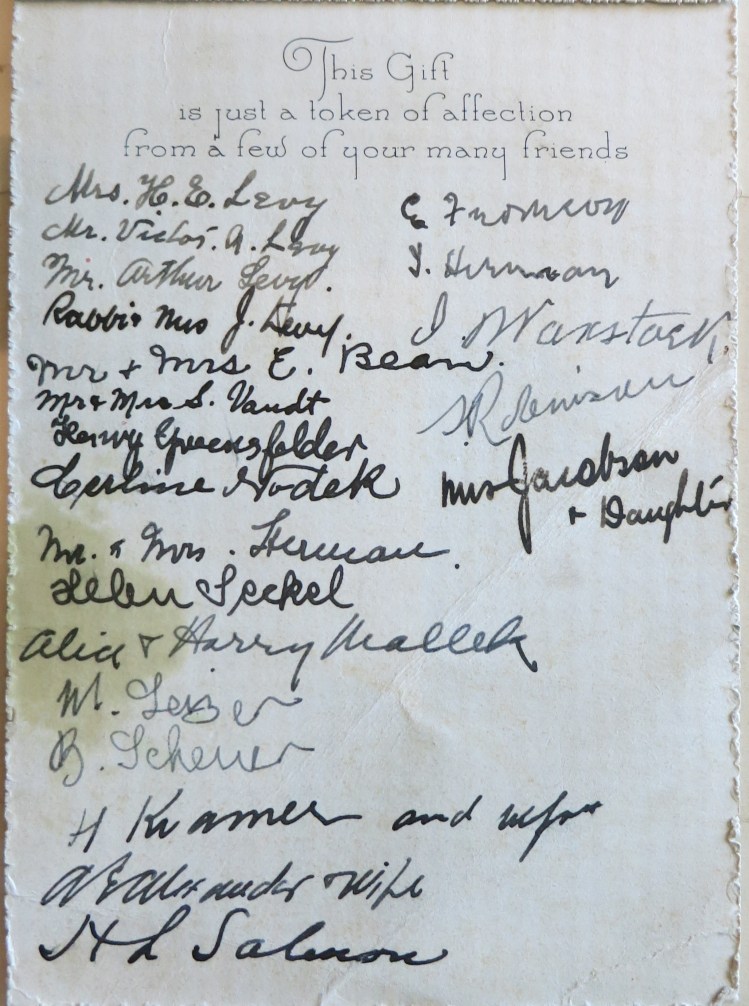 This Gift
is just a token of affection
from a few of your many friends
Mrs. H. E. Levy
Mr. Victor. A. Levy
Mr. Arthur Levy.
Rabbi & Mrs J. Levy.
Mr & Mrs E. Bean.
Mr & Mrs S. Vandt
Henry Greensfelder
Nodek
Mr. & Mrs. Herman.
Helen Seckel
Alice & Harry Mallek
M.
B. Scheuer
H Kramer and wife
A E Alexander & Wife
H L Salmon
E
I. Herman
I. Waxstock
S Robinson
Mrs Jacobson
& Daughter